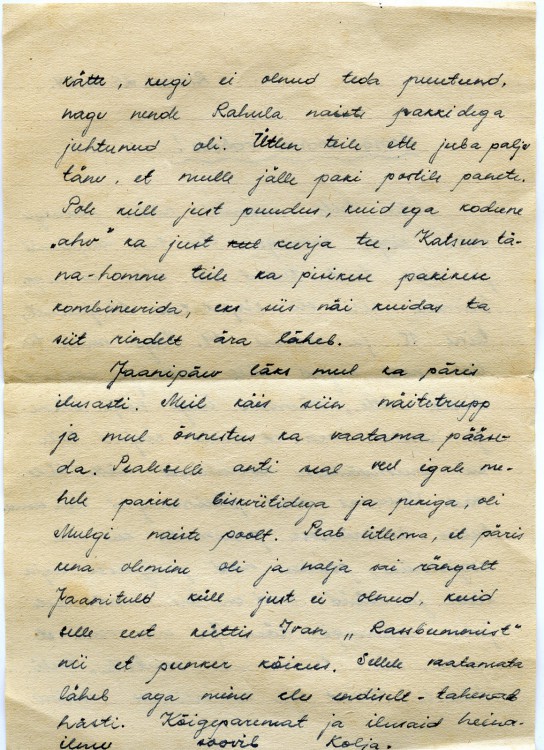 kätte, keegi ei olnud teda puutund,
nagu nende Rahula naiste pakkidega
juhtunud oli. Ütlen teile ette juba palju
tänu, et mulle jälle paki postile panete.
Pole küll just puudus, kuid ega kodune
„ahv" ka just kurja tee. Katsun tä-
na-homme teile ka pisikese pakikese
kombineerida, eks siis näi kuidas ta
siit rindelt ära läheb.
Jaanipäev läks mul ka päris
ilusasti. Meil käis siin näitetrupp
ja mul õnnestus ka vaatama pääse-
da. Pealeselle anti seal veel igale me-
hele pakike biskviitidega ja , oli
Mulgi naiste poolt. Peab ütlema, et päris
tena olemine oli ja nalja sai rängalt
Jaanituld küll just ei olnud, kuid
selle eest küttis Ivan „Rassbummist"
nii et punker kõikus. Sellele vaatamata
läheb aga minu elu endiselt-
hästi. Kõigeparemat ja ilusaid heina-
ilmu soovib Kolja.